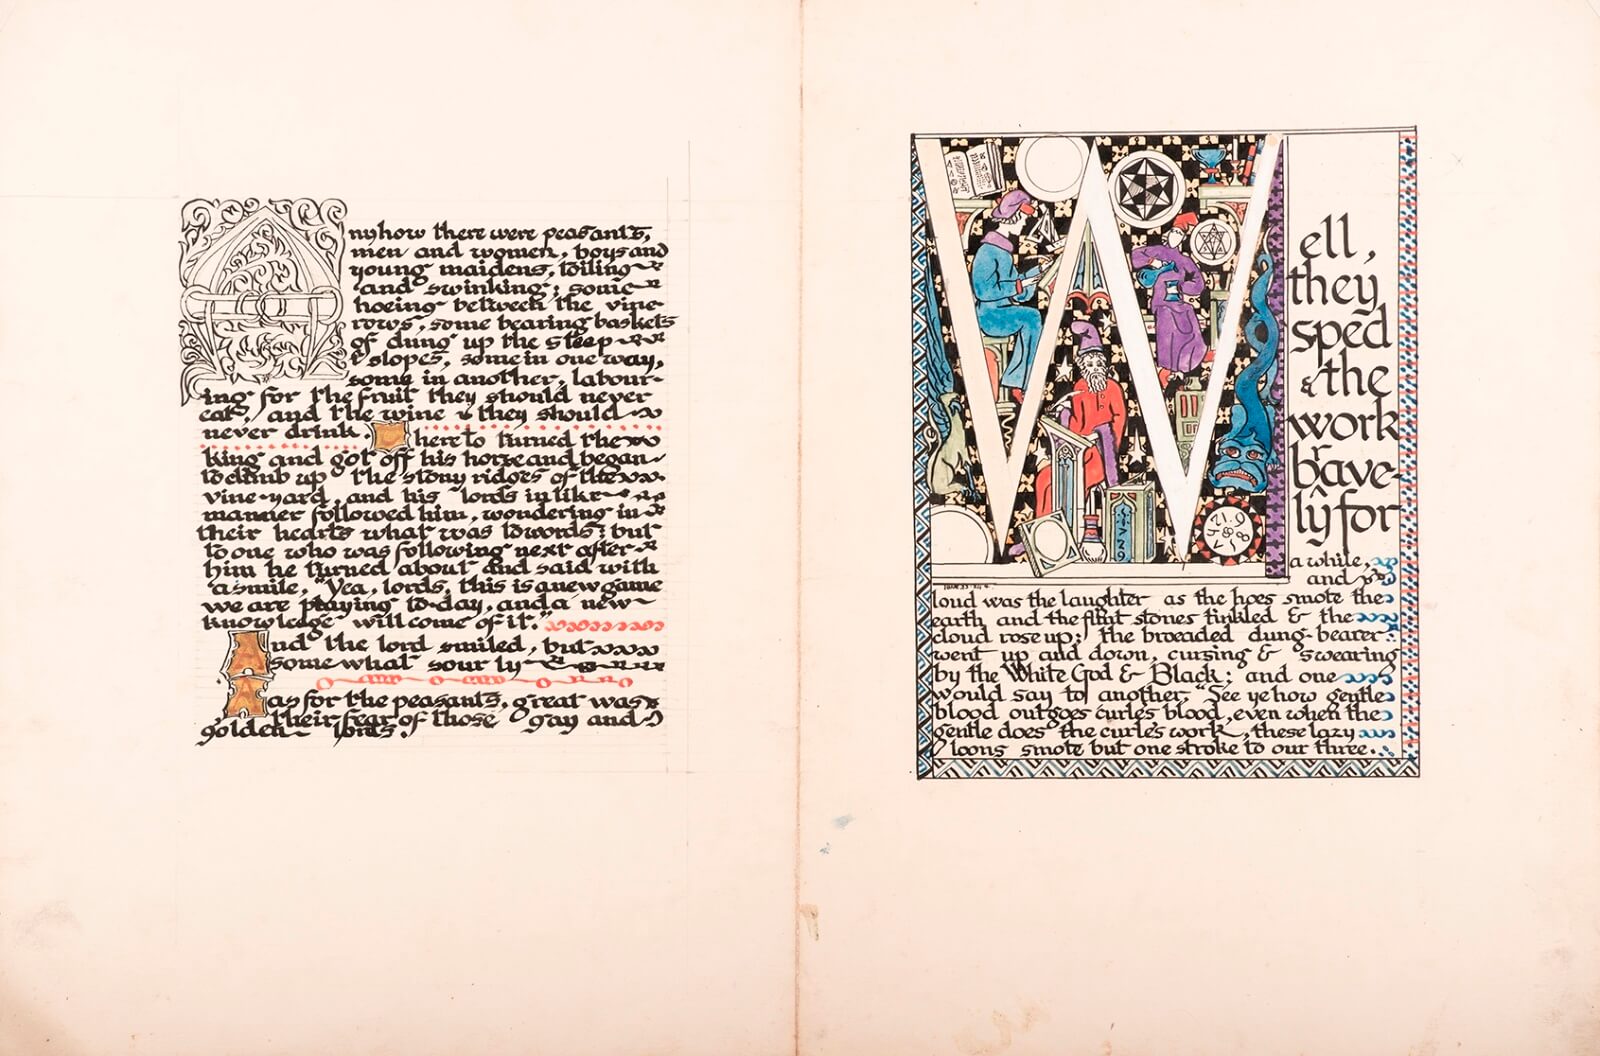 Anyhow there were peasants,
men and women, boys and
young maidens, toiling
and swinking; some
hoeing between the vine
rows, some bearing baskets
of dung up the steep
slopes, some in one way,
some in another, labour-
ing for the fruit they should never
eat, and the wine they should
never drink. Thereto turned the
king and got off his horse and began
to climb up the stony ridges of the
vine-yard, and his lords in like
manner followed him, wondering in
their hearts what was towords; but
to one who was following next after
him he turned about and said with
a smile, "Yea, lords, this is a new game
we are playing to-day, and a new
knowledge will come of it."
And the lord smiled, but
somewhat sourly
As for the peasants, great was
their fear of those gay and
golden lords.
Well,
they
sped
& the
work
brave-
ly for
a while,
and
loud was the laughter as the hoes smote the
earth and the flint stones tinkled & the
cloud rose up; the broeaded dung-bearer
went up and down, cursing & swearing
by the White God & Black; and one
would say to another, "See ye how gentle
blood outgoes curles blood, even when the
gentle does the curle's work, these lazy
loons smote but one stroke to our three.